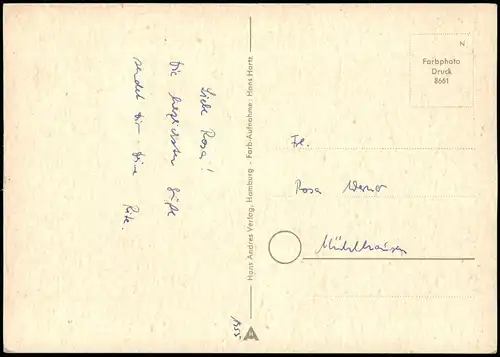 Liebe Rosa!
Die herzlichsten Grüße
sendet Dir Deine
Rita.
Hans Andres Verlag, Hamburg - Farb-Aufnahme: Hans Hartz
N
Farbphoto
Druck
8661
Frl.
Rosa Werner
Mühlhausen